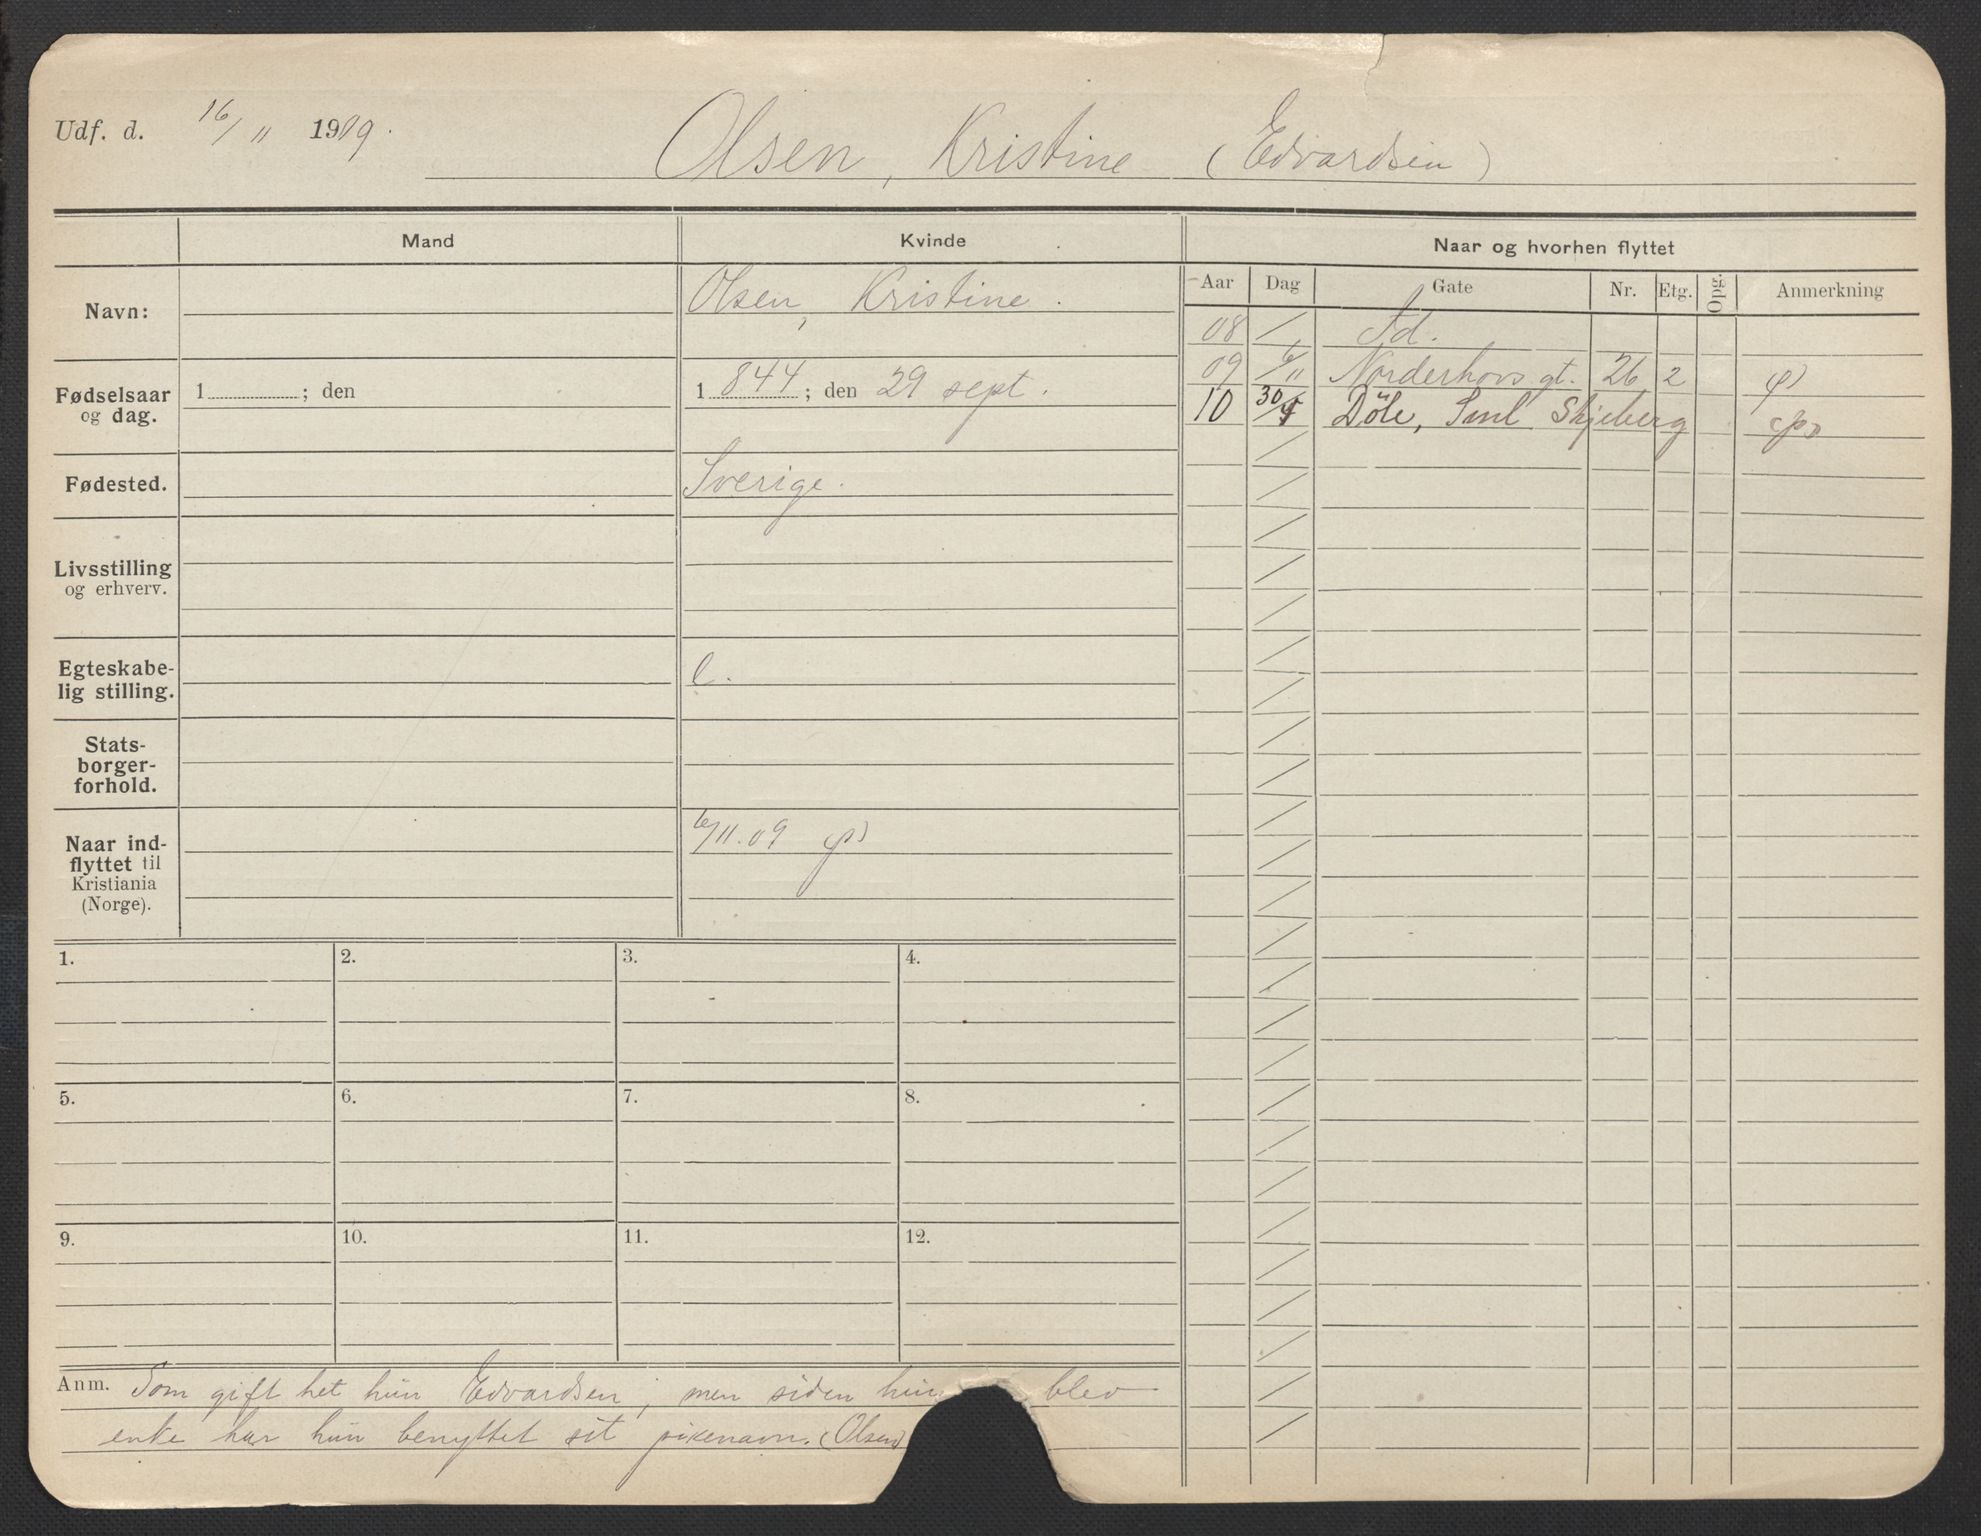 Udf. d. 16/11 1909.
Olsen, Kristine (Edvardsen)
Mand
Kvinde
Naar og hvorhen flyttet
Aar
Dag
Gate
Nr.
Etg.
Opg.
Anmerkning
Navn:
Olsen, Kristine.
08
09 6/11 Norderhovs gt. 26 2 (p)
10 30/4 Döle, Sml Skjeberg (p)
Fødselsaar
og dag.
1 ; den
1 844 ; den 29 sept.
Fødested.
Sverige.
Livsstilling
og erhverv.
Egteskabe-
lig stilling.
e.
Stats-
borger-
forhold.
Naar ind-
flyttet til
Kristiania
(Norge).
6/11.09 (p)
1.
2.
3.
4.
5.
6.
7.
8.
9.
10.
11.
12.
Anm. Som gift het hun Edvardsen, men siden hun blev
enke har hun benyttet sit pikenavn. (Olsen)